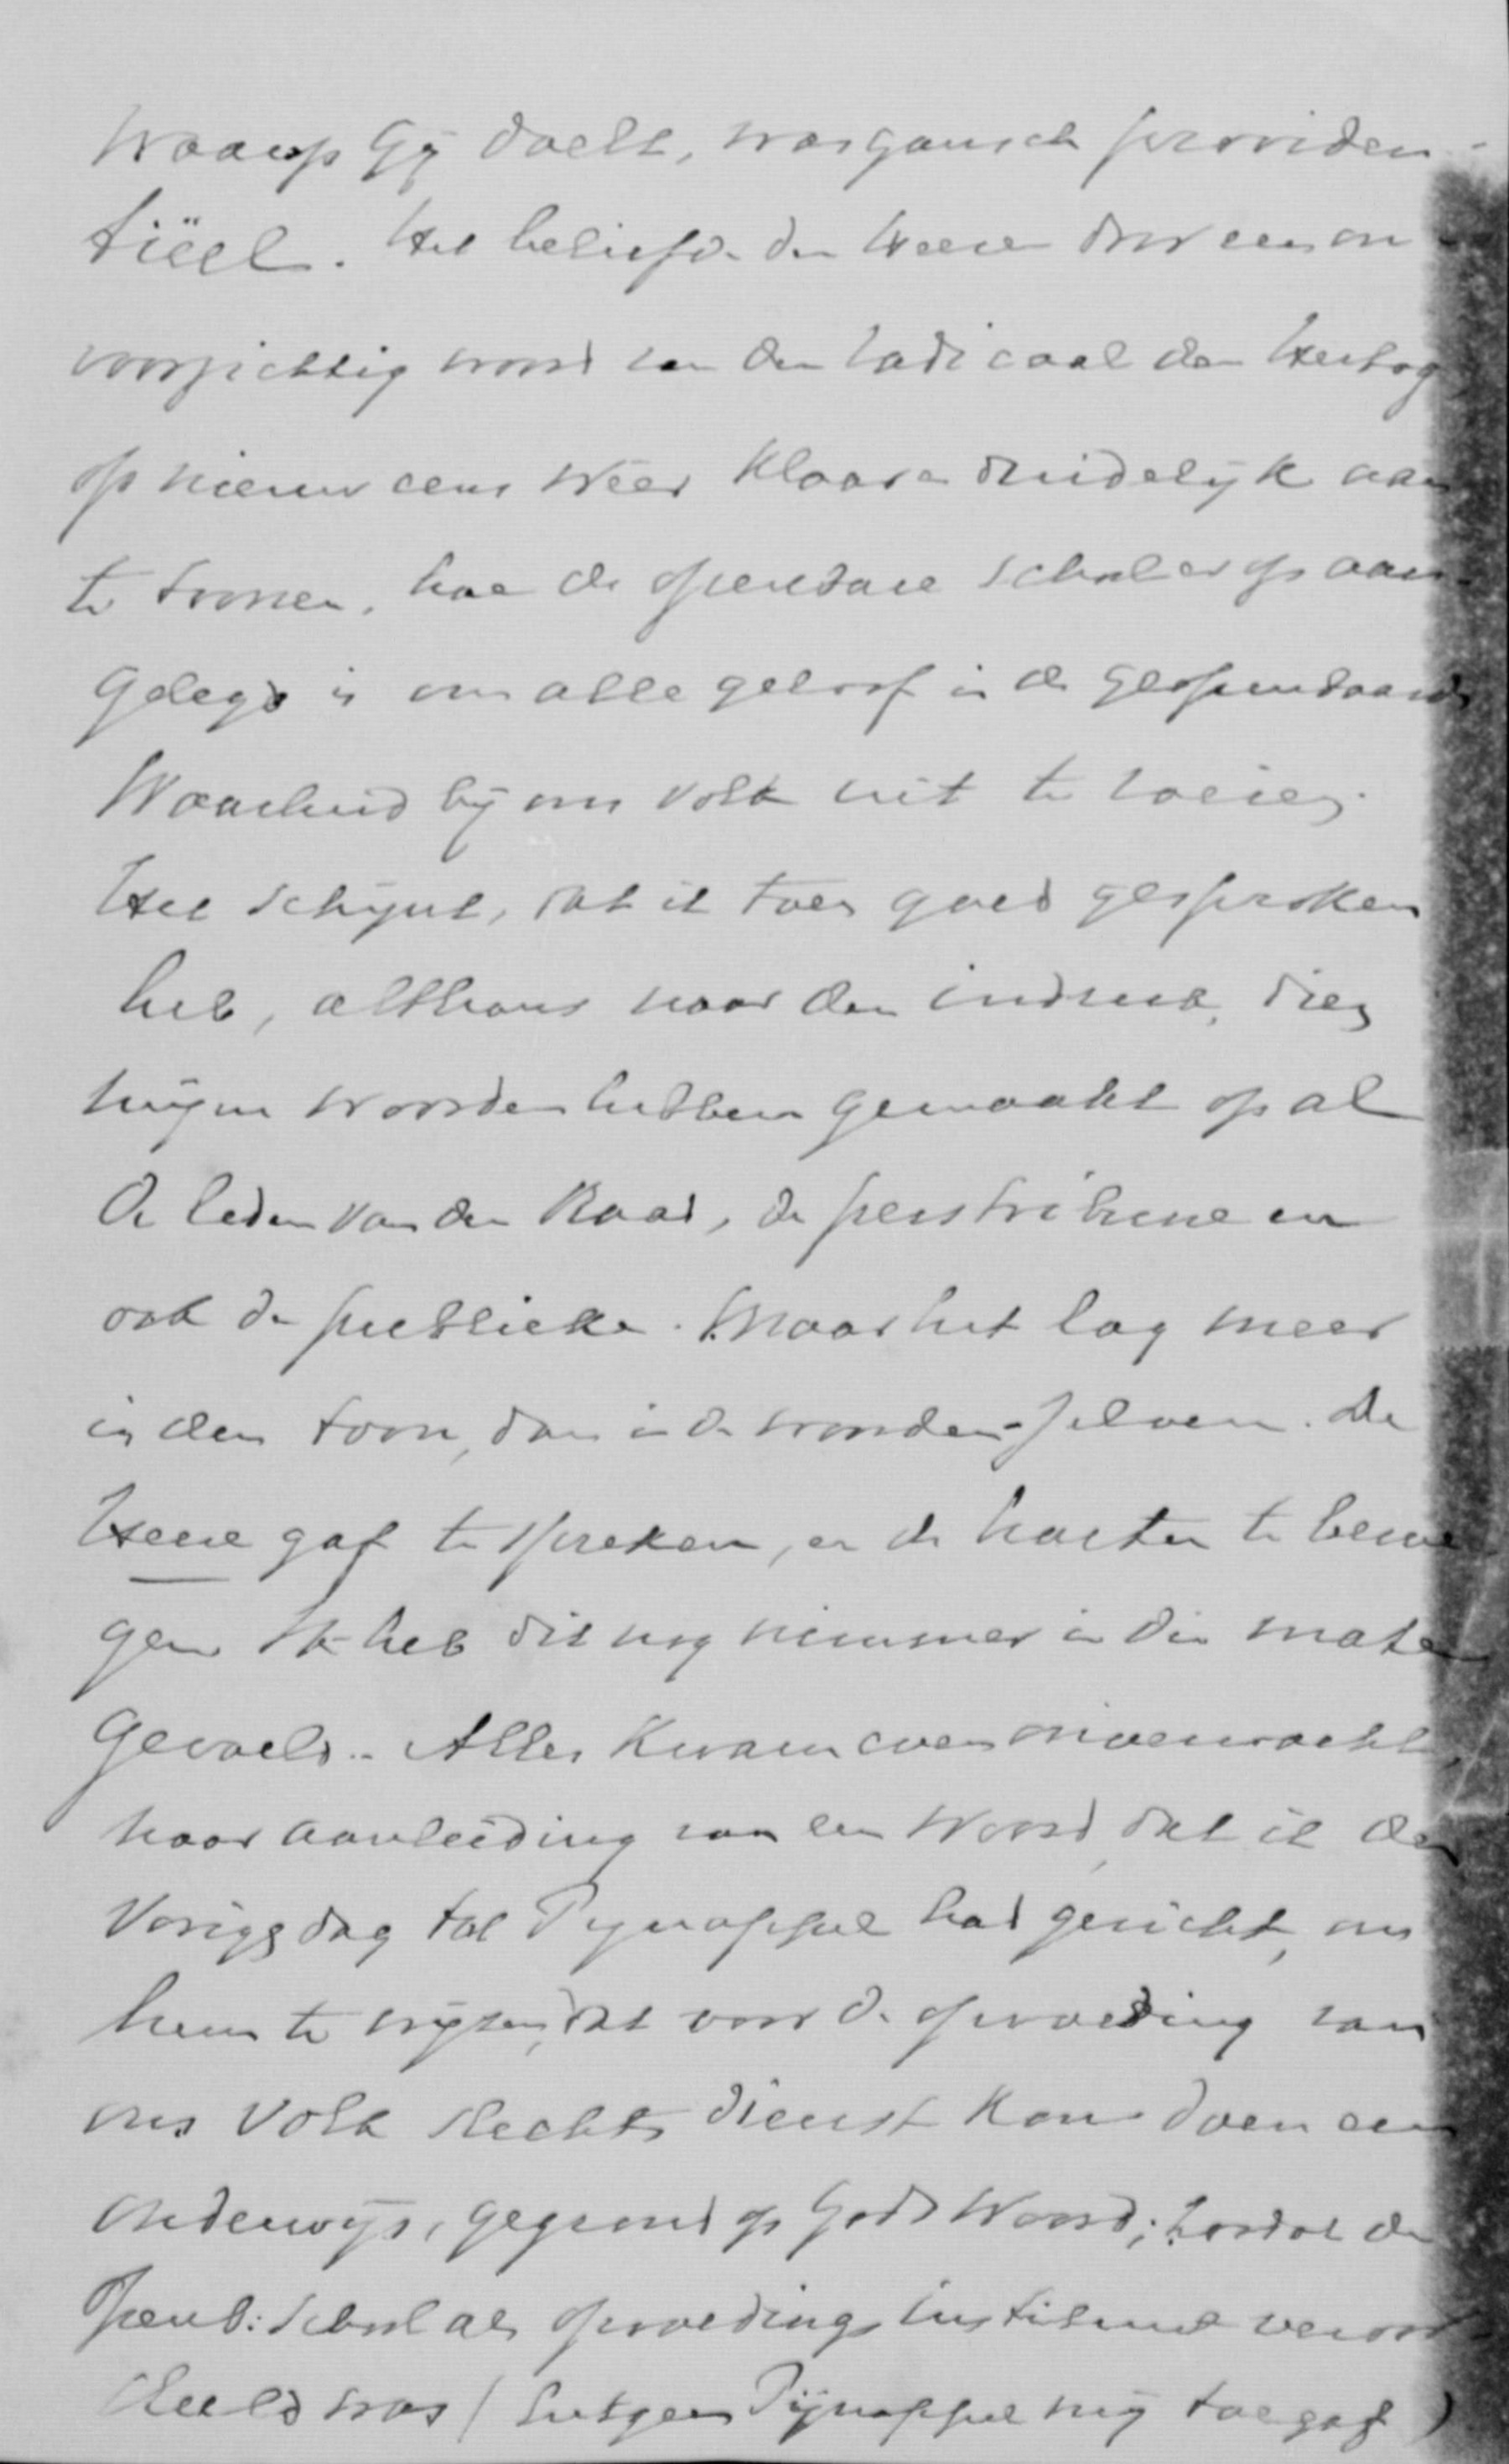 waarop Gij doelt, was gansch providen-
tiëel. Het beliefde den Heere door een on-
voorzichtig woord van den radicaal den Hertog
op nieuw eens weer klaar en duidelijk aan
te toonen, hoe de openbare school er op aan-
gelegd is om alle geloof in de geopenbaarde
Waarheid bij ons volk uit te roeien.
Het schijnt, dat ik toen goed gesproken
heb, althans naar den indruk, dien
mijne woorden hebben gemaakt op al
de leden van den Raad, de perstribune en
ook de publieke. Maar het lag meer
in den toon, dan in de woorden-zelven. De
Heere gaf te spreken, en de harten te bewe-
gen Ik heb dit nog nimmer in die mate
gevoeld.. Alles kwam even onverwacht,
naar aanleiding van een woord, dat ik den
vorigen dag tot Pijnappel had gericht, om
hem te wijzen, dat voor de opvoeding van
ons volk slechts dienst kon doen een
onderwijs, gegrond op Gods Woord; zoodat de
Openb: School als opvoedings instituut veroor-
deeld was (hetgeen Pijnappel mij toegaf)